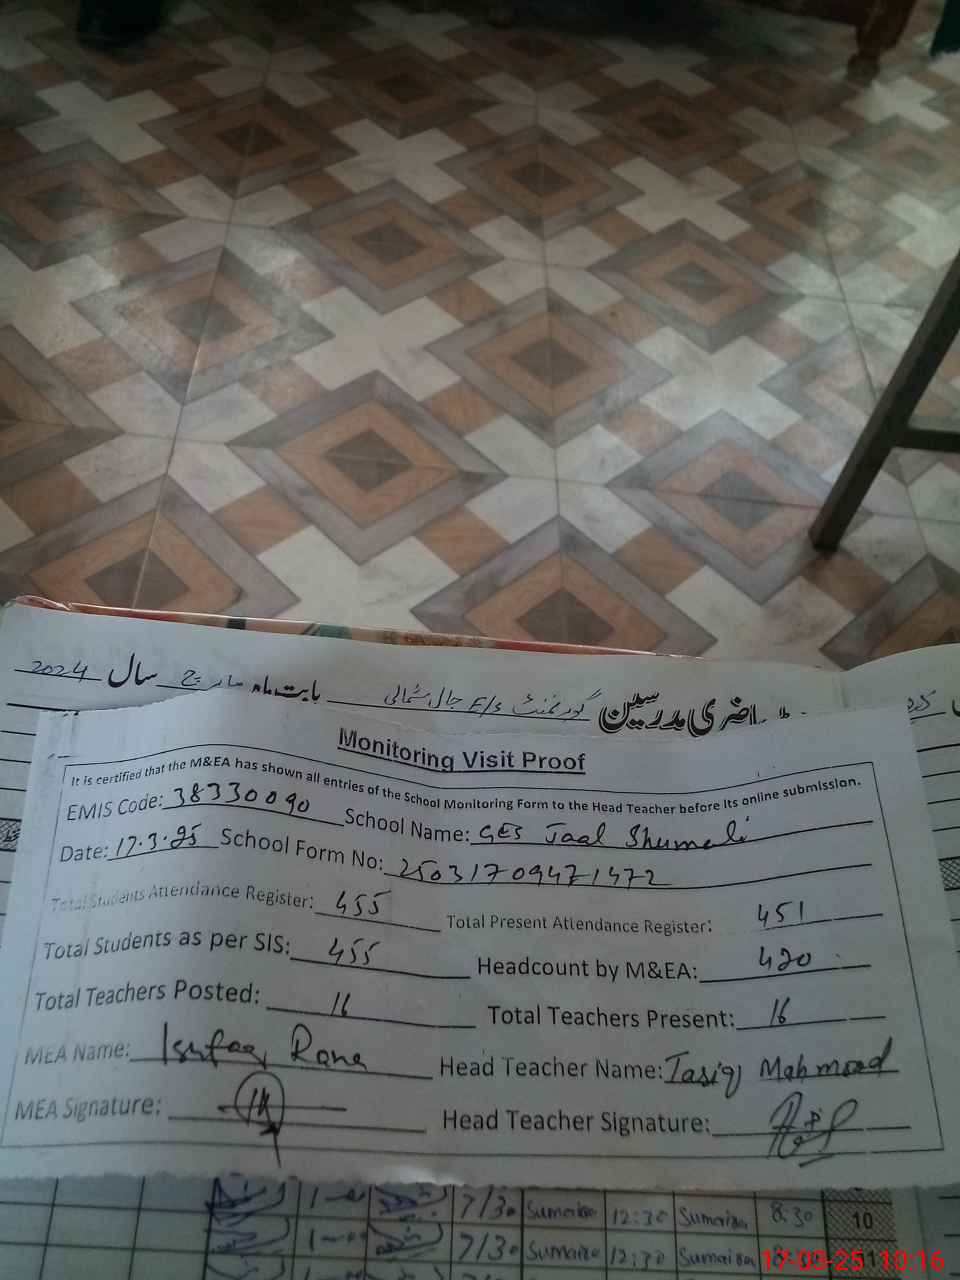 حاضری مدرسین گورنمنٹ E/S جال شمالی بابت ماہ مارچ سال 2024
Monitoring Visit Proof
It is certified that the M&EA has shown all entries of the School Monitoring Form to the Head Teacher before its online submission.
EMIS Code: 38330090 School Name: GES Jaal Shumali
Date: 17.3.25 School Form No: 25031709471472
Total Students Attendance Register: 455 Total Present Attendance Register: 451
Total Students as per SIS: 455 Headcount by M&EA: 420
Total Teachers Posted: 16 Total Teachers Present: 16
MEA Name: Ishfaq Rana Head Teacher Name: Tasiq Mahmood
MEA Signature: Head Teacher Signature:
7/30 Sumaira 12:30 Sumaira 8:30 10
7/30 Sumaira 12:30 Sumaira
17-03-25 10:16